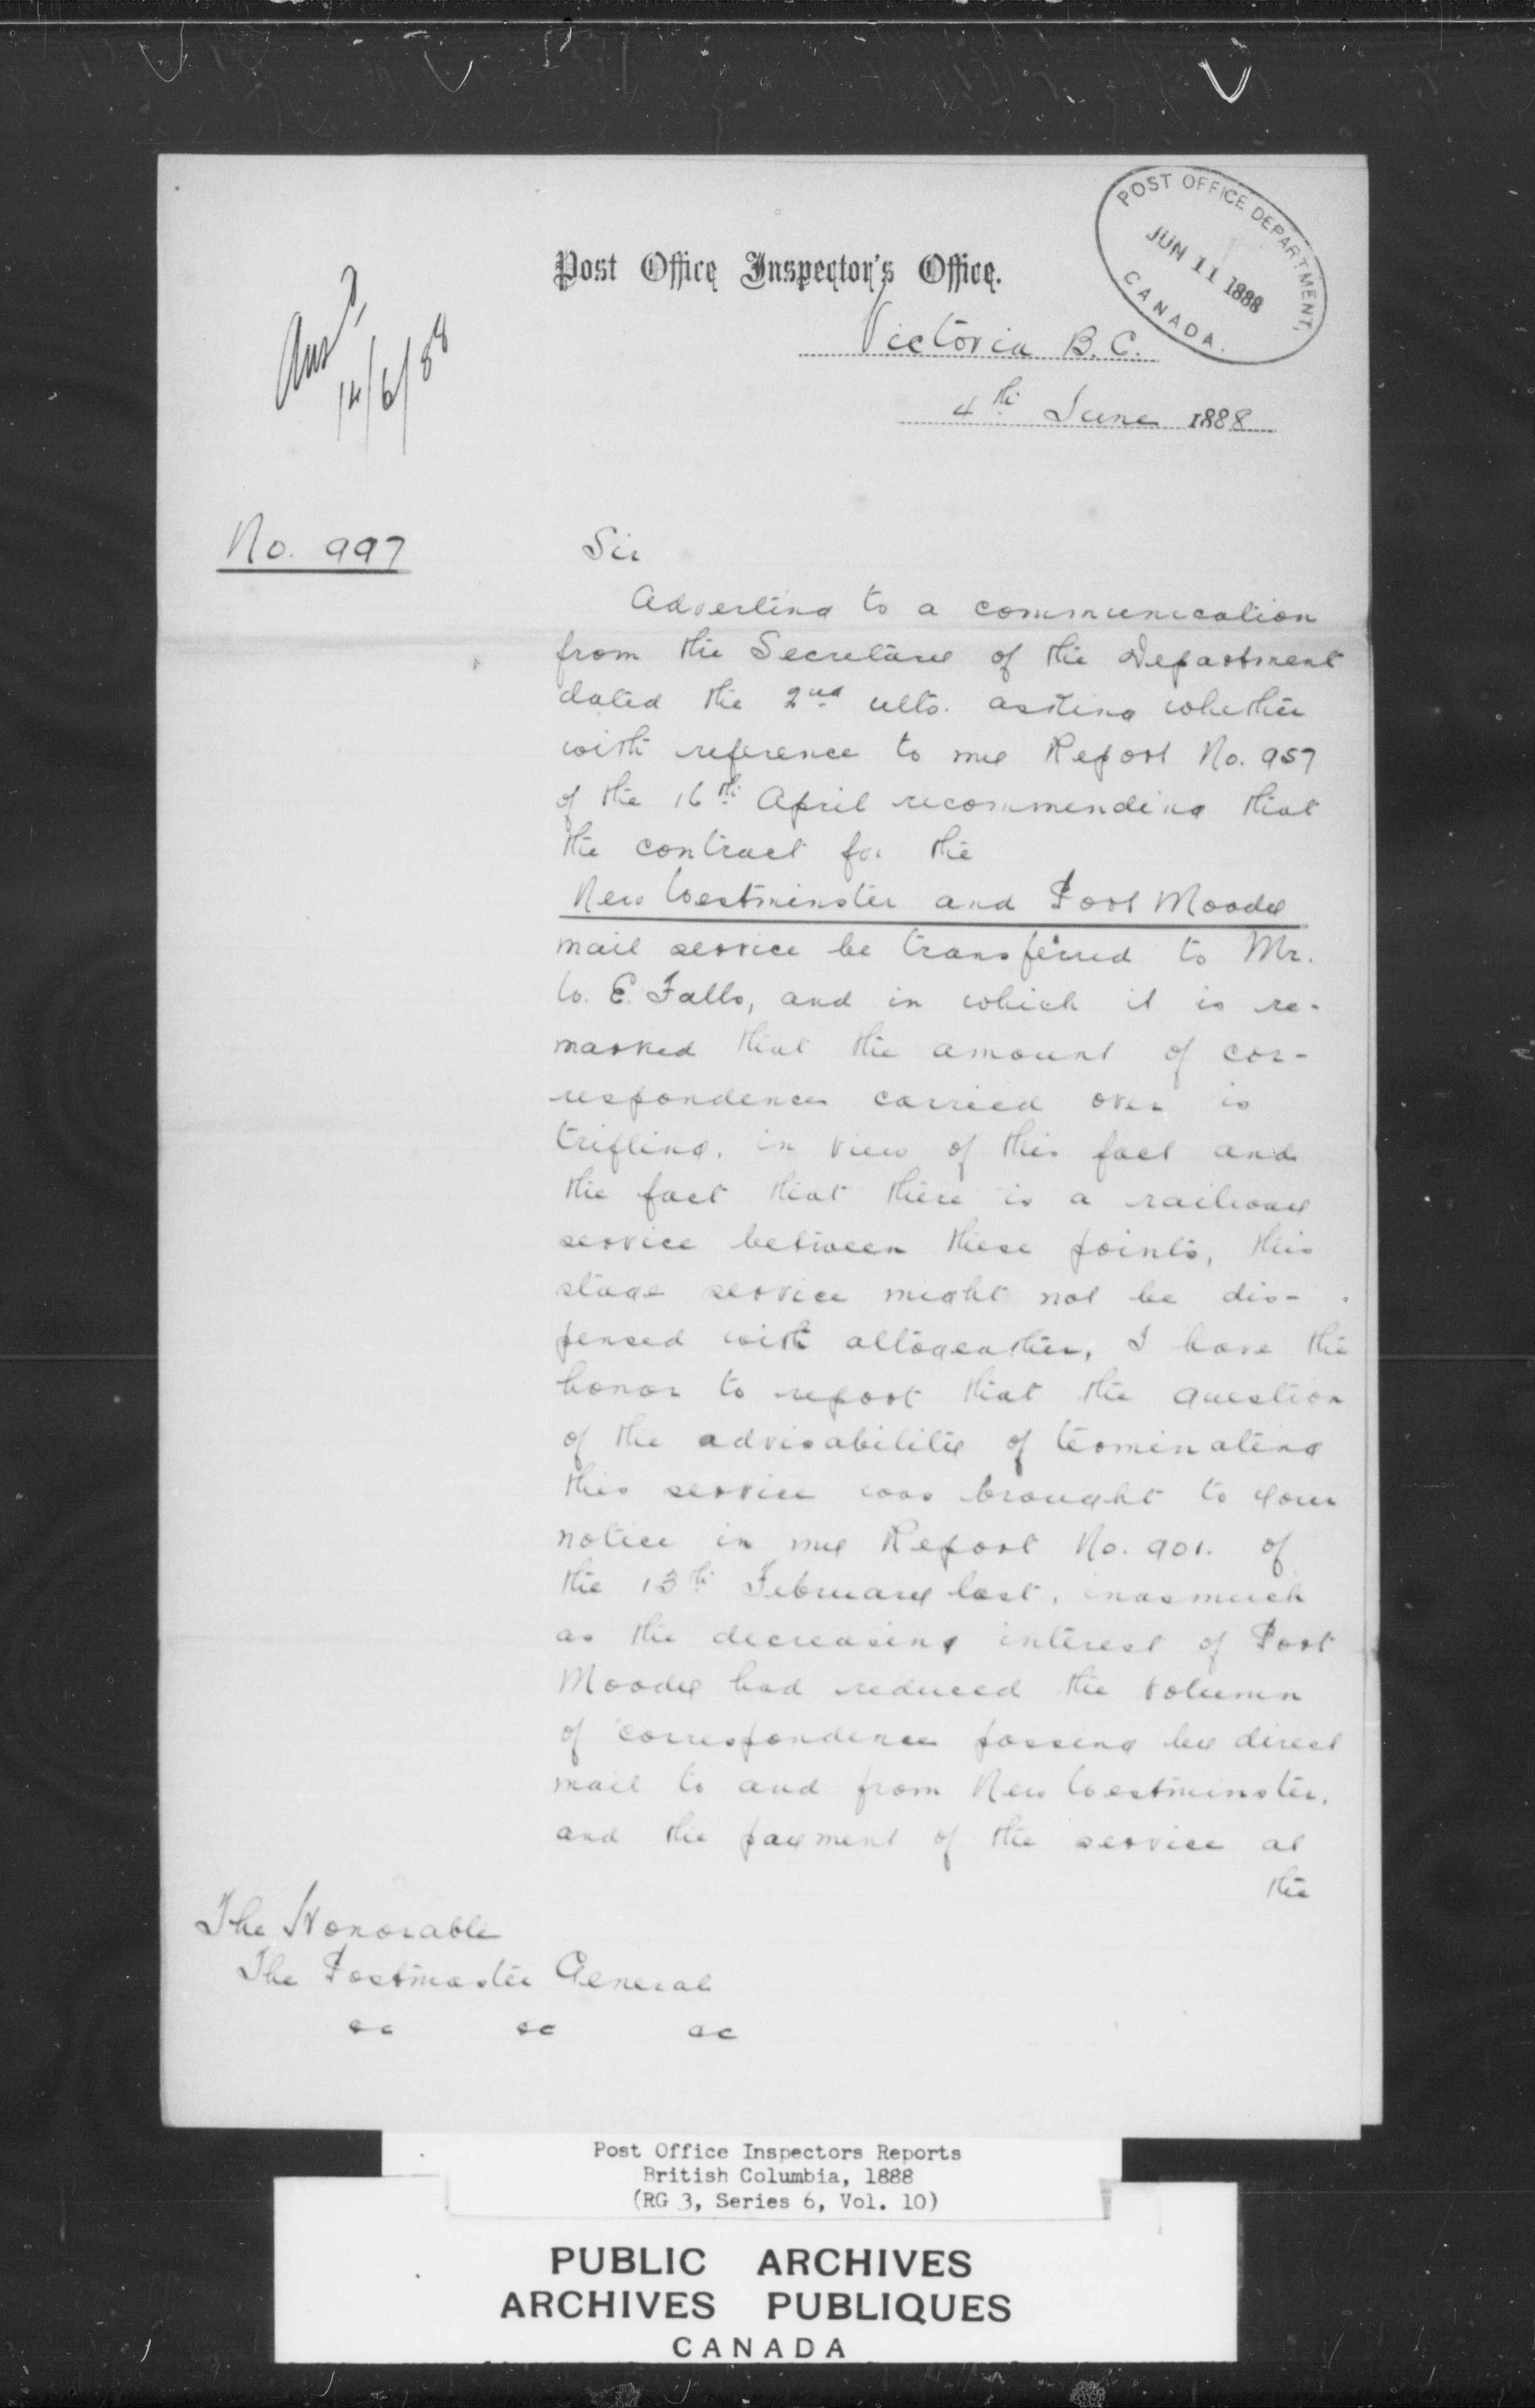 POST OFFICE DEPARTMENT,
JUN 11 1888
CANADA.
Post Office Inspector's Office.
Victoria B.C.
4th June 1888
Ansd,
14/6/88
No. 997
Sir
Adverting to a communication
from the Secretary of the Department
dated the 2nd ulto. asking whether
with reference to my Report No. 957
of the 16th April recommending that
the contract for the
New Westminster and Port Moody
mail service be transferred to Mr.
W. E. Falls, and in which it is re-
marked that the amount of cor-
respondence carried over is
trifling, in view of this fact and
the fact that there is a railway
service between these points, this
stage service might not be dis-
pensed with altogeather, I have the
honor to report that the question
of the advisability of terminating
this service was brought to your
notice in my Report No. 901. of
the 13th February last, inasmuch
as the decreasing interest of Port
Moody had reduced the volumn
of correspondence passing by direct
mail to and from New Westminster,
and the payment of the service at
the
The Honorable
The Postmaster General
&c &c &c
Post Office Inspectors Reports
British Columbia, 1888
(RG 3, Series 6, Vol. 10)
PUBLIC ARCHIVES
ARCHIVES PUBLIQUES
CANADA